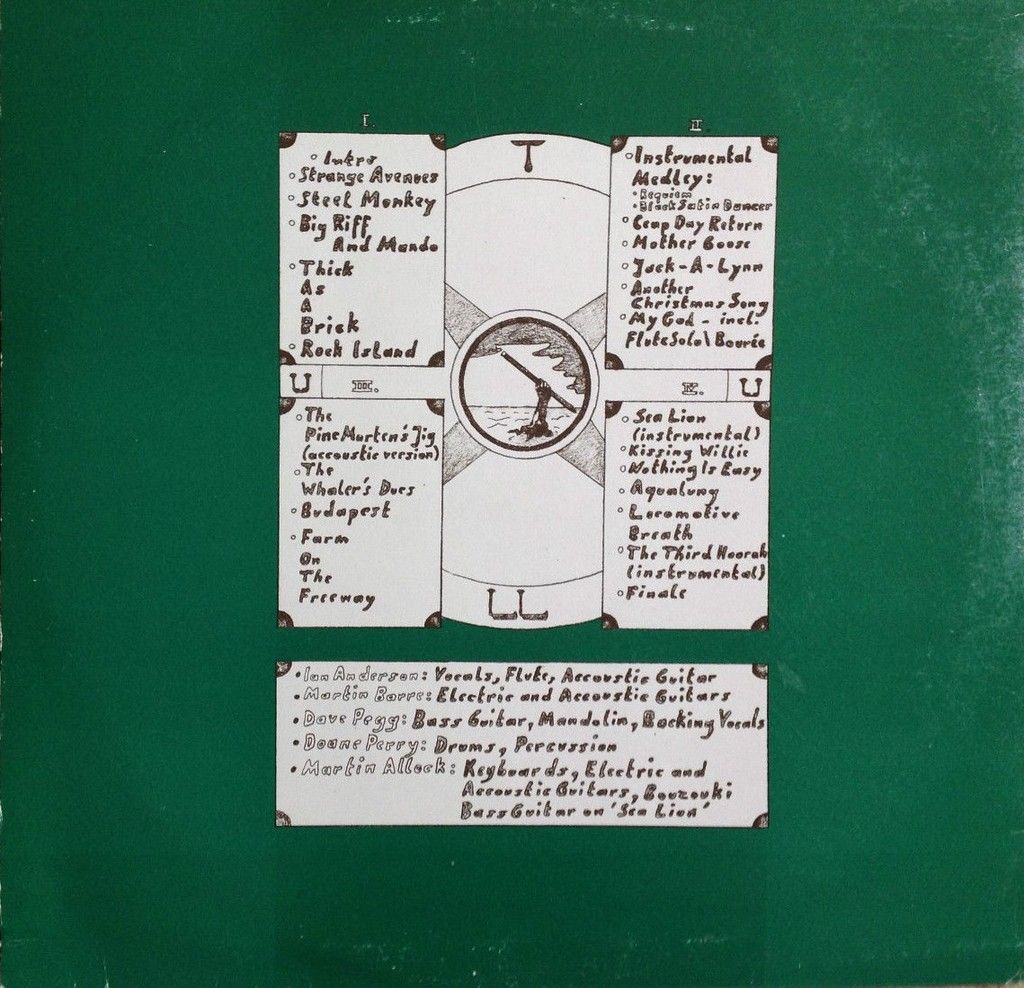 I.
Intro
Strange Avenues
Steel Monkey
Big Riff
And Mando
Thick
As
A
Brick
Rock Island
T
II.
Instrumental
Medley:
Requiem
Black Satin Dancer
Ceap Day Return
Mother Goose
Jack-A-Lynn
Another
Christmas Song
My God - incl.
Flute Solo\Bourée
U
III.
The
Pine Marten's Jig
(accoustic version)
The
Whaler's Dues
Budapest
Farm
On
The
Freeway
LL
U
Sea Lion
(instrumental)
Kissing Willie
Nothing Is Easy
Aqualung
Locomotive
Breath
The Third Hoorah
(instrumental)
Finale
Ian Anderson: Vocals, Flute, Accoustic Guitar
Martin Barre: Electric and Accoustic Guitars
Dave Pegg: Bass Guitar, Mandolin, Backing Vocals
Doane Perry: Drums, Percussion
Martin Allock: Keyboards, Electric and
Accoustic Guitars, Bouzouki
Bass Guitar on 'Sea Lion'